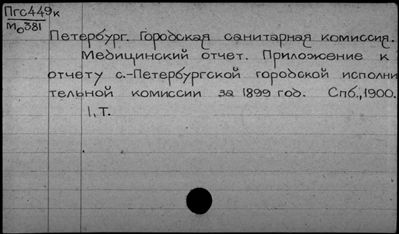 Пгс449к
Мо381
Петербург. Городская санитарная комиссия.
Медицинский отчет. Приложение к
отчету с.-Петербургской городской исполни
тельной комиссии за 1899 год. Спб., 1900.
1, т.